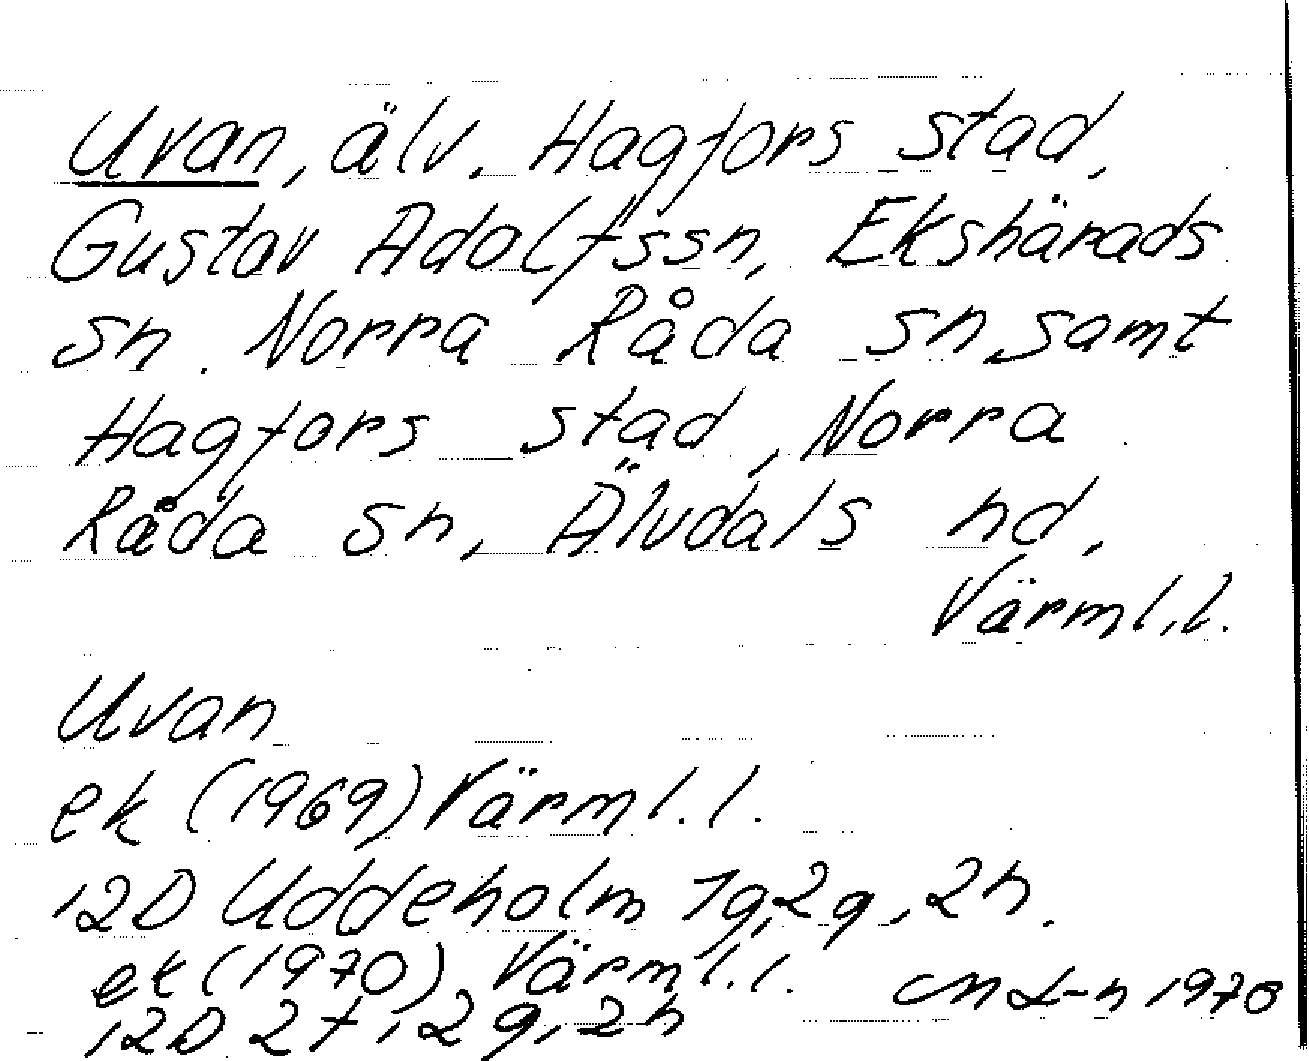 Uvan, älv. Hagfors stad,
Gustav Adolfssn, Ekshärads
sn. Norra Råda sn samt
Hagfors stad, Norra
Råda sn, Älvdals hd,
Värml.l.
Uvan
ek (1969) Värml.l.
12D Uddeholm 1g, 2g, 2h.
ek (1970) Värml.l.
12D 2f, 2g, 2h
1970